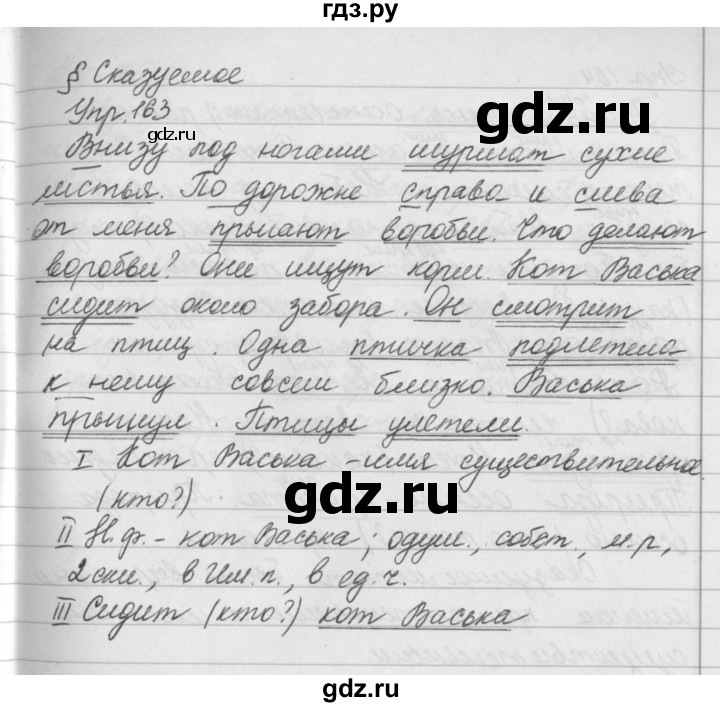 гдз.ру
§ Сказуемое
Упр. 163
gdz.ru
Внизу под ногами шуршат сухие
листья. По дорожке справа и слева
gdz.ru
от меня прыгают воробьи. Что делают
воробьи? Они ищут корм. Кот Васька
сидит около забора. Он смотрит
на птиц. Одна птичка подлетела
к нему совсем близко. Васька
прыгнул. Птицы улетели.
I Кот Васька - имя существительное
(кто?)
gdz.ru
II Н.ф. - кот Васька; одуш., собст., м.р.,
2 скл., в Им.п., в ед.ч.
III Сидит (кто?) кот Васька
gdz.ru